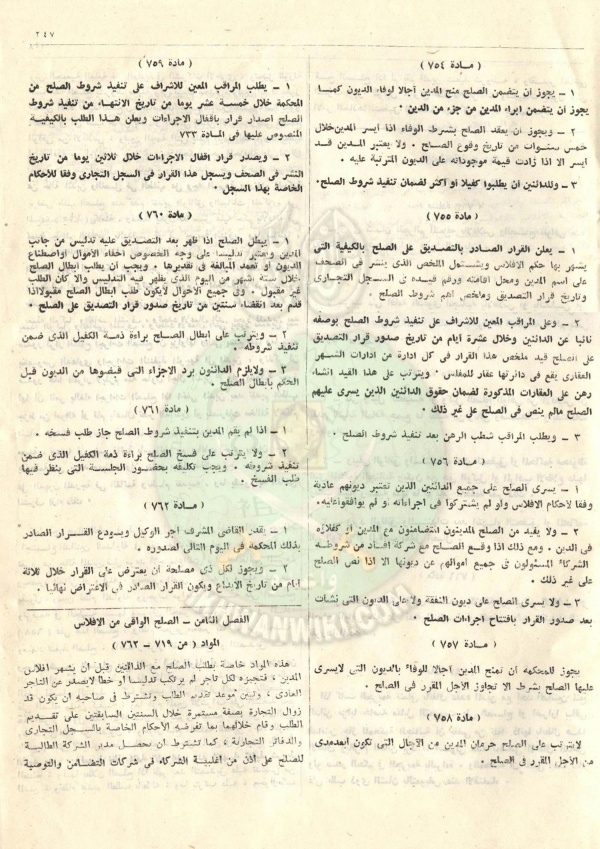 ٢٤٧
( مادة ٧٥٤ )
١ ـ يجوز أن يتضمن الصلح منح المدين آجالا لوفاء الديون كمـا
يجوز أن يتضمن ابراء المدين من جزء من الدين .
٢ ـ ويجوز أن يعقد الصلح بشرط الوفاء اذا أيسر المدين خلال
خمس سنوات من تاريخ وقوع الصـلح . ولا يعتبر المـدين قـد
أيسر الا اذا زادت قيمة موجوداته على الديون المترتبة عليه .
٣ ـ وللدائنين أن يطلبوا كفيلا أو أكثر لضمان تنفيذ شروط الصلح.
( مادة ٧٥٥ )
١ ـ يعلن القرار الصادر بالتصديق على الصلح بالكيفية التى
يشهر بها حكم الافلاس ويشتمل الملخص الذى ينشر فى الصحف
على اسم المدين ومحل اقامته ورقم قيده فى السجل التجارى
وتاريخ قرار التصديق وملخص أهم شروط الصلح .
٢ ـ وعلى المراقب المعين للاشراف على تنفيذ شروط الصلح بوصفه
نائبا عن الدائنين وخلال عشرة أيام من تاريخ صدور قرار التصديق
على الصلح قيد ملخص هذا القرار فى كل ادارة من ادارات الشهر
العقارى يقع فى دائرتها عقار للمفلس . ويترتب على هذا القيد انشاء
رهن على العقارات المذكورة لضمان حقوق الدائنين الذين يسرى عليهم
الصلح مالم ينص فى الصلح على غير ذلك .
٣ ـ ويطلب المراقب شطب الرهن بعد تنفيذ شروط الصلح .
( مادة ٧٥٦ )
١ ـ يسرى الصلح على جميع الدائنين الذين تعتبر ديونهم عادية
وفقا لاحكام الافلاس ولو لم يشتركوا فى اجراءاته أو لم يوافقوا عليه.
٢ ـ ولا يفيد من الصلح المدينون المتضامنون مع المدين أو كفلاؤه
فى الدين . ومع ذلك اذا وقـع الصـلح مع شركة أفـاد من شروطـه
الشركاء المسئولون فى جميع أموالهم عن ديونها الا اذا نص الصلح
على غير ذلك .
٣ ـ ولا يسرى الصلح على ديون النفقة ولا على الديون التى نشأت
بعد صدور القرار بافتتاح اجراءات الصلح .
( مادة ٧٥٧ )
يجوز للمحكمة أن تمنح المدين آجالا للوفاء بالديون التى لا يسرى
عليها الصلح بشرط الا تجاوز الأجل المقرر فى الصلح .
( مادة ٧٥٨ )
لا يترتب على الصلح حرمان المدين من الآجال التى تكون أبعد مدى
من الأجل المقرر فى الصلح .
( مادة ٧٥٩ )
١ ـ يطلب المراقب المعين للاشراف على تنفيذ شروط الصلح من
المحكمة خلال خمسة عشر يوما من تاريخ الانتهـاء من تنفيذ شروط
الصلح اصدار قرار باقفال الاجراءات ويعلن هذا الطلب بالكيفية
المنصوص عليها فى المـادة ٧٣٣
٢ ـ ويصدر قرار اقفال الاجراءات خلال ثلاثين يوما من تاريخ
النشر فى الصحف ويسجل هذا القرار فى السجل التجارى وفقا للأحكام
الخاصة بهذا السجل .
( مادة ٧٦٠ )
١ ـ يبطل الصلح اذا ظهر بعد التصديق عليه تدليس من جانب
المدين ويعتبر تدليسا على وجه الخصوص اخفاء الأموال أو اصطناع
الديون أو تعمد المبالغة فى تقديرها . ويجب أن يطلب ابطال الصلح
خلال ستة أشهر من اليوم الذى يظهر فيه التدليس والا كان الطلب
غير مقبول . وفى جميع الأحوال لا يكون طلب ابطال الصلح مقبولا اذا
قدم بعد انقضاء سنتين من تاريخ صدور قرار التصديق على الصلح .
٢ ـ ويترتب على ابطال الصـلح براءة ذمـة الكفيل الذى ضمن
تنفيذ شروطه .
٣ ـ ولا يلزم الدائنون برد الأجزاء التى قبضوها من الديون قبل
الحكم بابطال الصلح .
( مادة ٧٦١ )
١ ـ اذا لم يقم المدين بتنفيذ شروط الصلح جاز طلب فسخه .
٢ ـ ولا يترتب على فسخ الصلح براءة ذمة الكفيل الذى ضمن
تنفيذ شروطه . ويجب تكليفه بحضور الجلسة التى ينظر فيها
طلب الفسخ .
( مادة ٧٦٢ )
١ ـ يقدر القاضى المشرف أجر الوكيل ويودع القـرار الصادر
بذلك المحكمة فى اليوم التالى لصدوره .
٢ ـ ويجوز لكل ذى مصلحة أن يعترض على القرار خلال ثلاثة
أيام من تاريخ الايداع ويكون القرار الصادر فى الاعتراض نهائيا .
الفصل الثامن ـ الصلح الواقى من الافلاس
المواد ( من ٧١٩ ـ ٧٦٢ )
هذه المواد خاصة بطلب الصلح مع الدائنين قبل أن يشهر افلاس
المدين ، فتجيزه لكل تاجر لم يرتكب تدليسا أو خطأ لا يصدر عن التاجر
العادى ، وتبين موعد تقديم الطلب وتشترط فى صاحبه أن يكون قد
زوال التجارة بصفة مستمرة خلال السنتين السابقتين على تقـديم
الطلب وقام خلالهما بما تفرضه الأحكام الخاصة بالسـجل التجارى
والدفاتر التجارية ، كما تشترط أن يحصل مدير الشركة الطالبة
للصلح على اذن من أغلبية الشركاء فى شركات التضـامن والتوصية
MANWIKI.CO